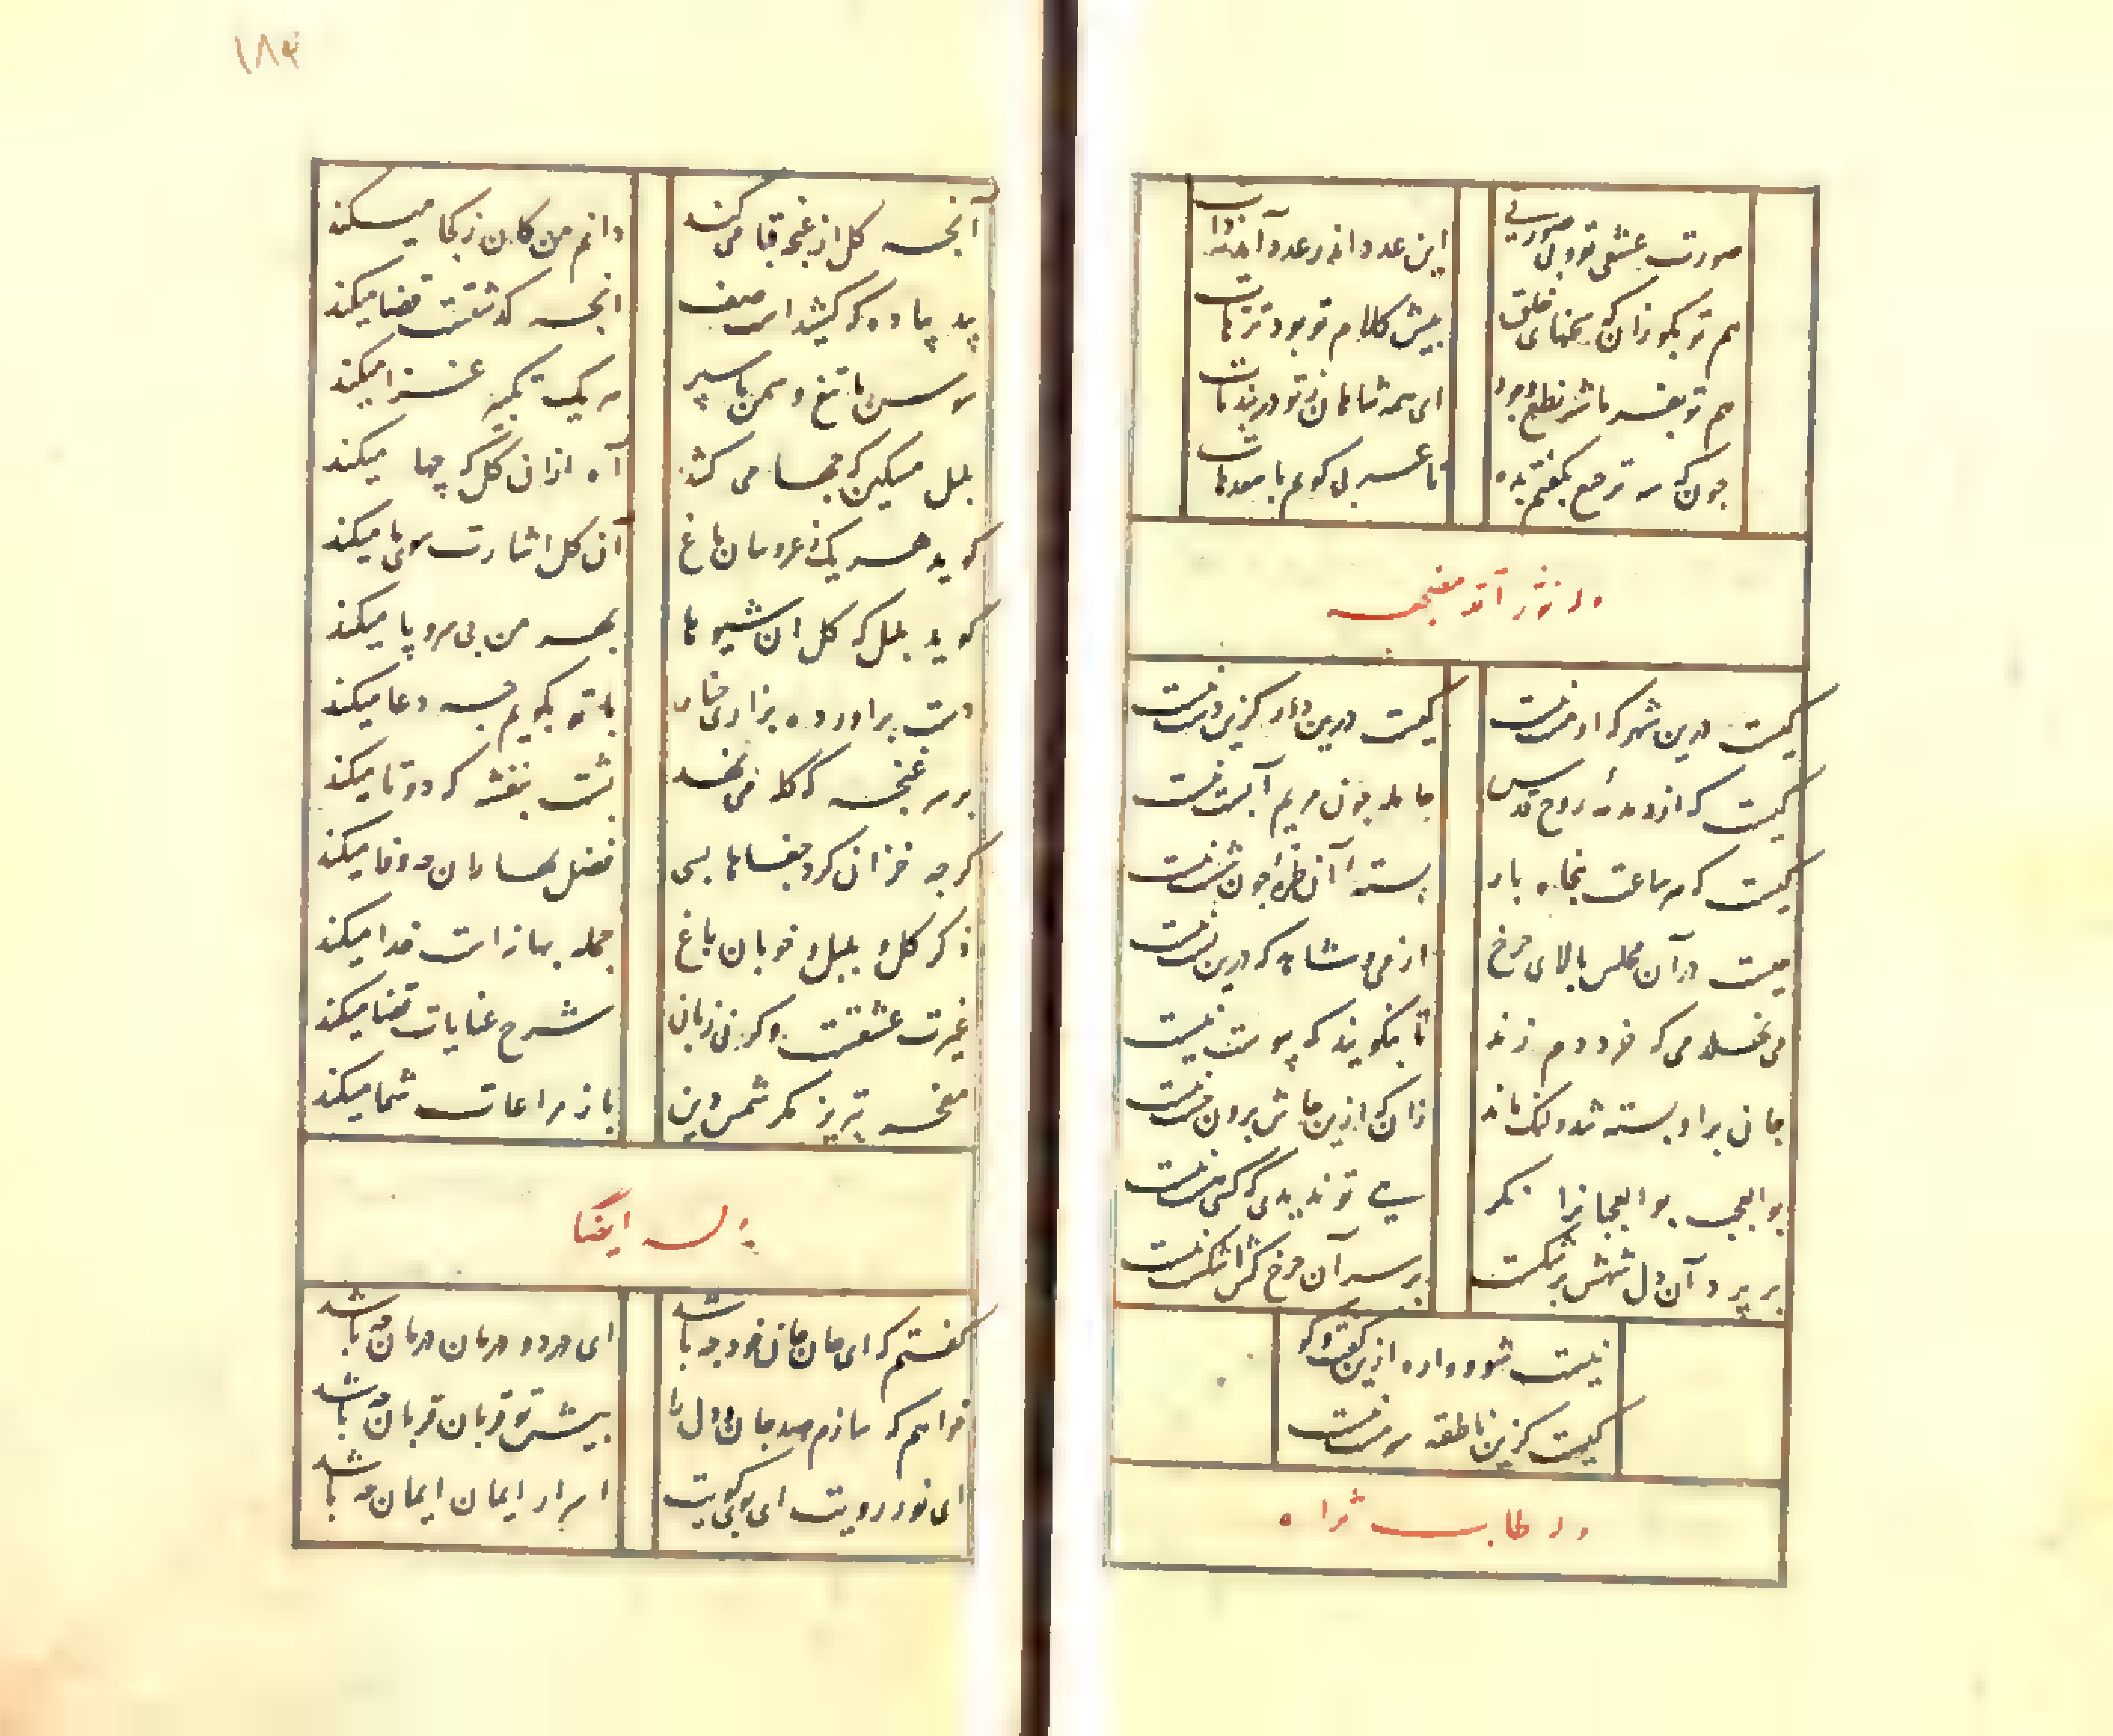 صورت عشقی تو و بی صورتی
این عدد اندر عدد آمد
هم تو بکو زان که سخنهای خلق
پیش کلام تو بود ترهات
هم تو بفسر ما شه نطع وجود
ای همه شاهان ز تو در بند مات
چون که سه ترجیع بکفتم بده
تا عسر بی کویم با
کیست درین شهر که او مست نیست
کیست درین دور کزین دست نیست
کیست که از دمدمهٔ روح قدس
حامله چون مریم آبست نیست
کیست که هر ساعت پنجاه بار
بستهٔ آن طرهٔ چون شست نیست
چیست در آن مجلس بالای چرخ
از می و شاهد که درین پست نیست
می نهلد می که خرد دم زند
تا بنکویند که پیوست نیست
جان بر او بسته شد و لنک ماند
زان که ازین جاش برون جست نیست
بو العجب بو العجبانرا نکر
هیچ تو ندیدی که کسی هست نیست
بر پرد آن دل که پرش شه شکست
بر سر آن چرخ کش اشکست نیست
نیست شو و واره ازین کفت و کو
کیست کزین ناطقه سرمست نیست
وله طاب ثراه
۱۸۴
آنچه کل از غنچه قبا می کند
دانم من کان ز کجا میکند
بید پیاده که کشید است صف
انچه کذشتست قضا میکند
سوسن با تیغ و سمن با سپر
هر یک تکبیر غزا میکند
بلبل مسکین که چها می کشد
آه ازان کل که چها میکند
کوید هر یک ز عروسان باغ
آن کل اشارت سوی ما میکند
کوید بلبل که کل ان شیوه ها
بهر من بی سر و پا میکند
دست براورده بزاری چنار
با تو بکویم چه دعا میکند
بر سر غنچه که کله می نهد
پشت بنفشه که دوتا میکند
کرچه خزان کرد جفاها بسی
فصل بهاران چه وفا میکند
ذکر کل و بلبل و خوبان باغ
جمله بهانه است خدا میکند
غیرت عشقست وکرنی زبان
شرح عنایات قضا میکند
مفخر تبریز مکر شمس دین
باز مراعات شما میکند
وله ایضا
کفتم که ای جان جان خود چه باشد
ای درد و درمان درمان چه باشد
خواهم که سازم صد جان و دل را
پیش تو قربان قربان چه باشد
ای نور رویت ای بوی کویت
اسرار ایمان ایمان چه باشد